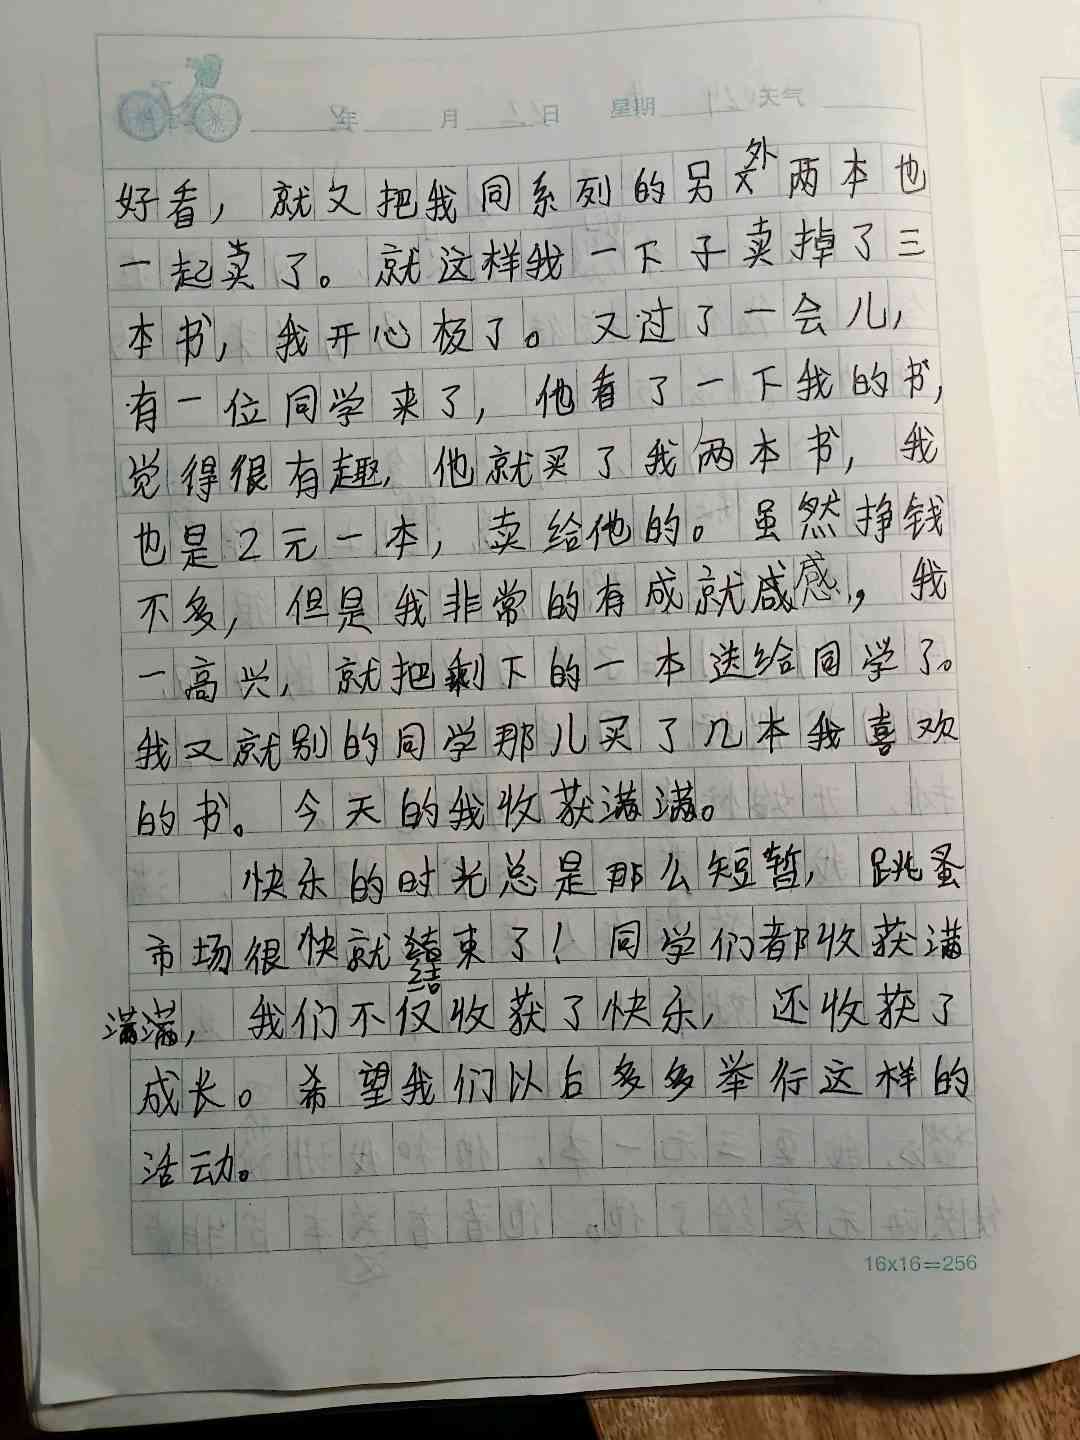 年 月 日 星期 天气
好看，就又把我同系列的另外两本也
一起卖了。就这样我一下子卖掉了三
本书，我开心极了。又过了一会儿，
有一位同学来了，他看了一下我的书，
觉得很有趣，他就买了我两本书，我
也是2元一本，卖给他的。虽然挣钱
不多，但是我非常的有成就感，我
一高兴，就把剩下的一本送给同学了。
我又就别的同学那儿买了几本我喜欢
的书。今天的我收获满满。
快乐的时光总是那么短暂，跳蚤
市场很快就结束了！同学们都收获满
满满，我们不仅收获了快乐，还收获了
成长。希望我们以后多多举行这样的
活动。
16x16=256